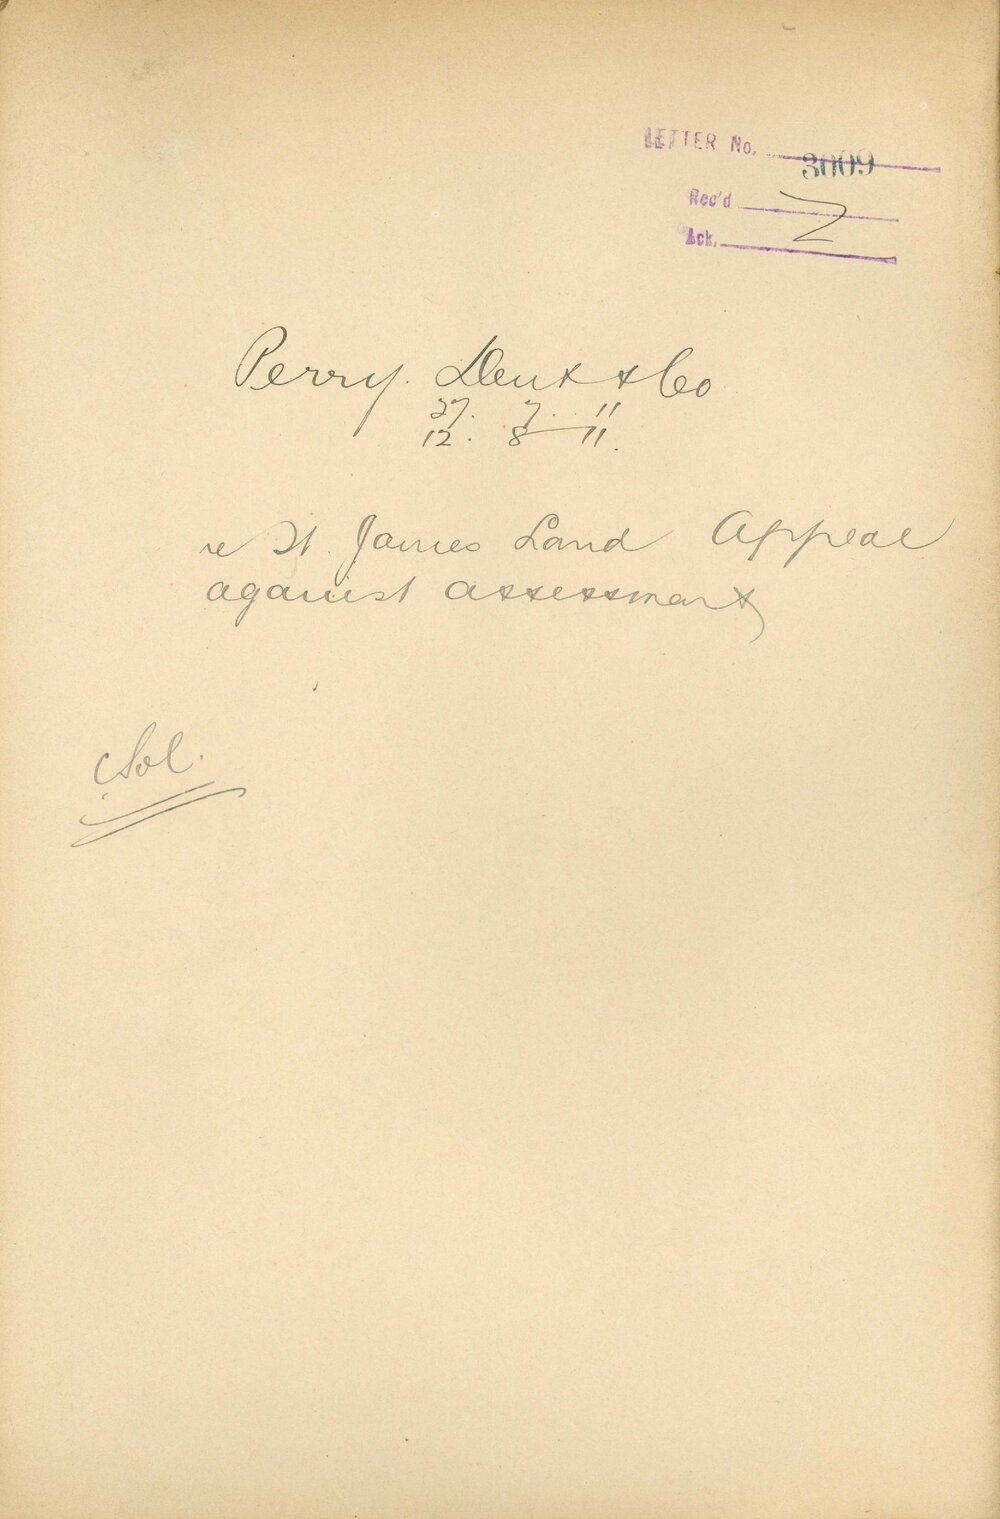 LETTER No. 3009
Rec'd
Ack.
Perry. Dent & Co
27. 7. 11
12. 8 11.
re St. James Land Appeal
against assessment
Sol.